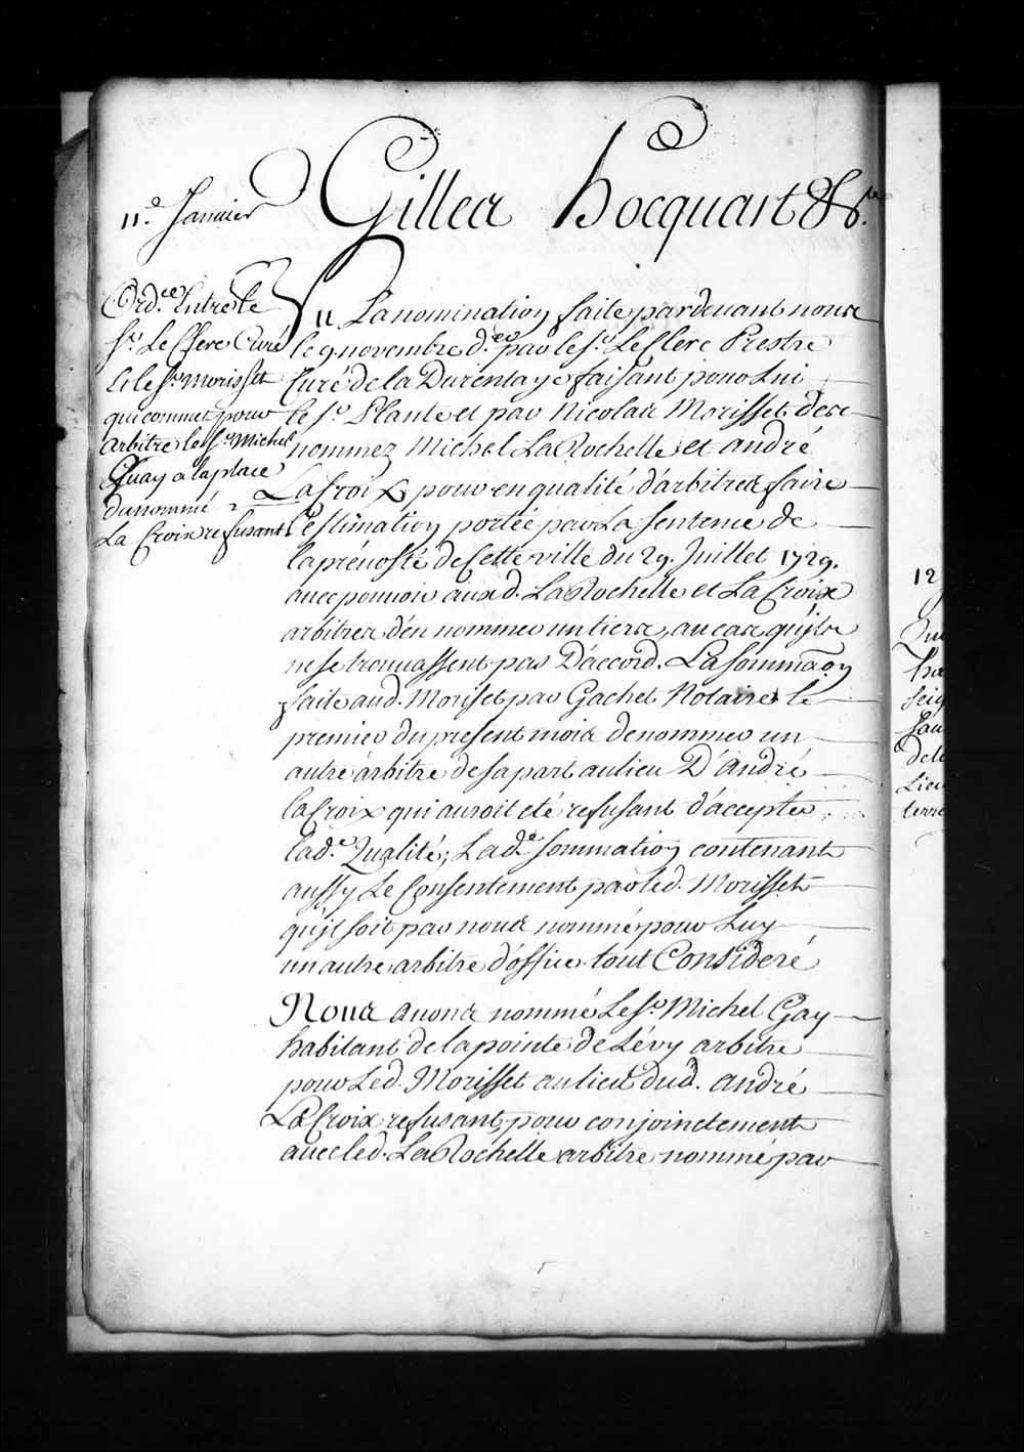 11e. Janvier
Gilles hocquart &c.a
Ord.ce Entre le
Sr. Le Clerc Curé
Et le Sr. Morisset
qui commet pour
arbitre le Sr. Michel
Guay a la place
du nommé
La Croix refusant
Vu La nomination faite pardevant nous
le 9. novembre d.er par le Sr. Le Clerc Prestre
Curé de la Durentaye faisant pour Lui
le Sr. Plante et par Nicolas Morisset de
nommez Michel La Rochelle et andré
La Croix, pour en qualité d'arbitres faire
l'estimation portée par La Sentence de
la prévosté de Cette ville du 29. Juillet 1729.
avec pouvoir aux d. La Rochelle et La Croix
arbitres d'en nommer un tiers, au cas qu'ils
ne se trouvassent pas D'accord. La Somma͠on
faite aud. Morisset par Gachet Notaire le
premier du present mois de nommer un
autre arbitre de sa part au lieu D'André
La Croix qui auroit eté refusant d'accepter
lad.e Qualité; Lad.e Sommation contenant
aussy Le Consentement par led. Morisset
qu'jl soit par nous nommé pour Luy
un autre arbitre d'office. tout Consideré
Nous avons nommé Le Sr. Michel Gay
habitant de la pointe De Lévy arbitre
pour Led. Morisset au lieu dud. andré
La Croix refusant, pour conjoinctement
avec led. La Rochelle arbitre nommé par
12